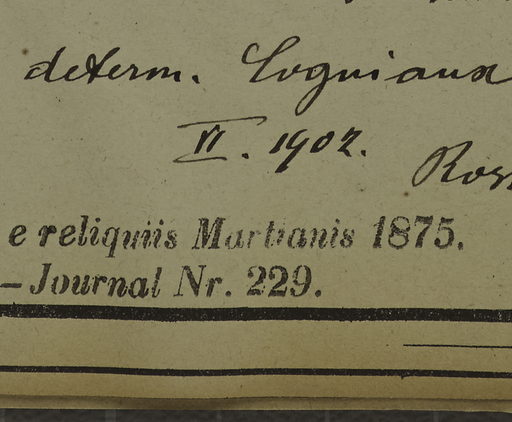 determ. Cogniaux
VI. 1902.
e reliquiis Martianis 1875.
– Journal Nr. 229.